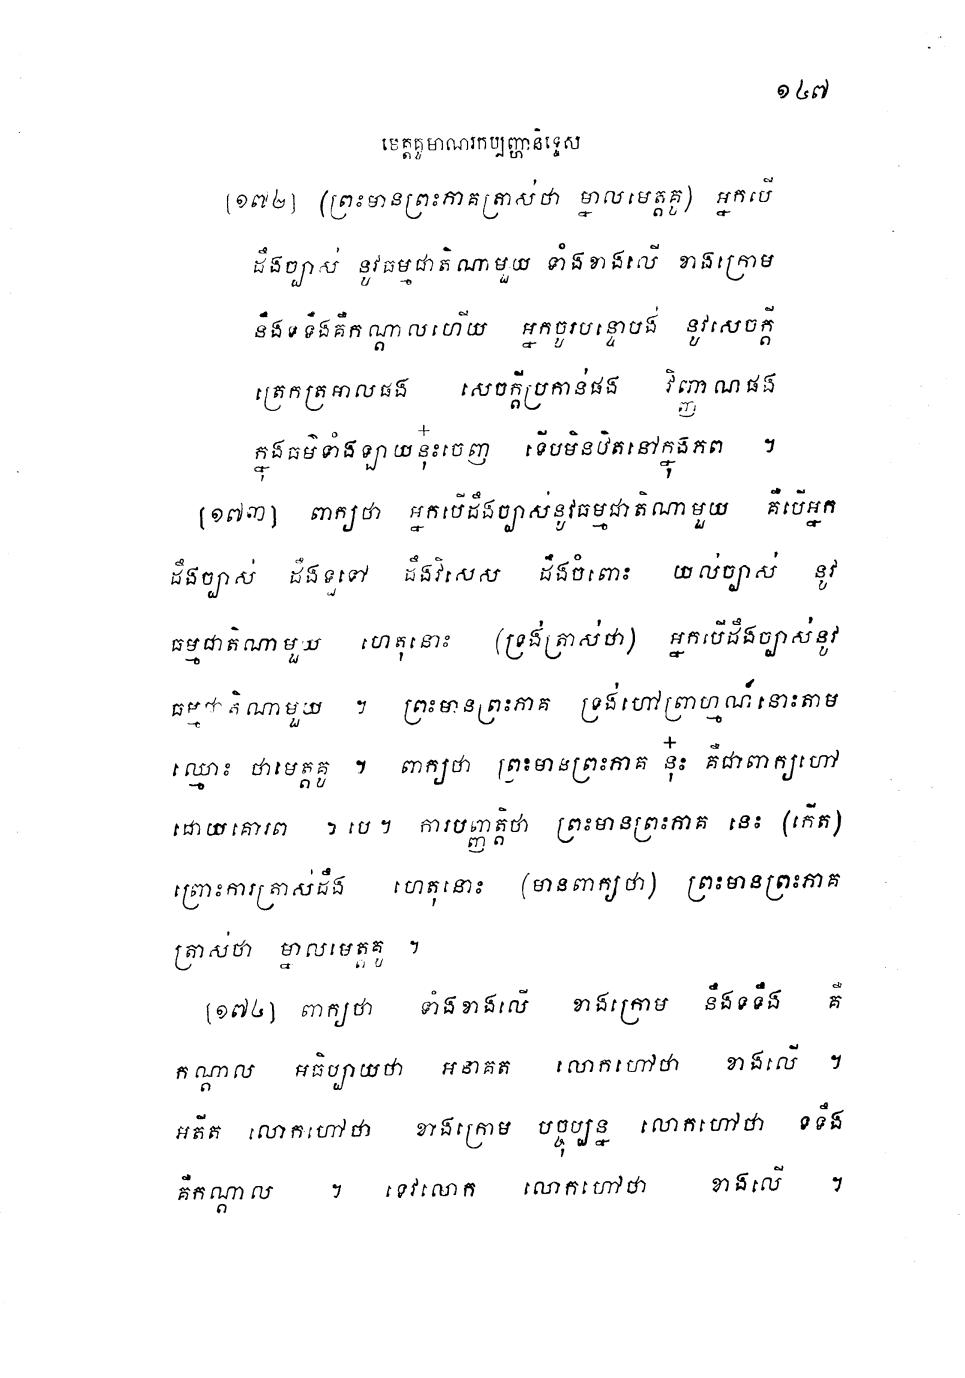 ១៤៧
មេត្តគូមាណវកប្បញ្ហានិទ្ទេស
[១៧២] (ព្រះមានព្រះភាគត្រាស់ថា ម្នាលមេត្តគូ) អ្នកបើ
ដឹងច្បាស់ នូវធម្មជាតិណាមួយ ទាំងខាងលើ ខាងក្រោម
និងទទឹងគឺកណ្តាលហើយ អ្នកចូរបន្ទោបង់ នូវសេចក្តី
ត្រេកត្រអាលផង សេចក្តីប្រកាន់ផង វិញ្ញាណផង
ក្នុងធម៌ទាំងឡាយនុ៎ះចេញ ទើបមិនឋិតនៅក្នុងភព ។
[១៧៣] ពាក្យថា អ្នកបើដឹងច្បាស់នូវធម្មជាតិណាមួយ គឺបើអ្នក
ដឹងច្បាស់ ដឹងទួទៅ ដឹងវិសេស ដឹងចំពោះ យល់ច្បាស់ នូវ
ធម្មជាតិណាមួយ ហេតុនោះ (ទ្រង់ត្រាស់ថា) អ្នកបើដឹងច្បាស់នូវ
ធម្មជាតិណាមួយ ។ ព្រះមានព្រះភាគ ទ្រង់ហៅព្រាហ្មណ៍នោះតាម
ឈ្មោះ ថាមេត្តគូ ។ ពាក្យថា ព្រះមានព្រះភាគ នុ៎ះ គឺជាពាក្យហៅ
ដោយគោរព ៗបេ។ ការបញ្ញត្តិថា ព្រះមានព្រះភាគ នេះ (កើត)
ព្រោះការត្រាស់ដឹង ហេតុនោះ (មានពាក្យថា) ព្រះមានព្រះភាគ
ត្រាស់ថា ម្នាលមេត្តគូ ។
[១៧៤] ពាក្យថា ទាំងខាងលើ ខាងក្រោម និងទទឹង គឺ
កណ្តាល អធិប្បាយថា អនាគត លោកហៅថា ខាងលើ ។
អតីត លោកហៅថា ខាងក្រោម បច្ចុប្បន្ន លោកហៅថា ទទឹង
គឺកណ្តាល ។ ទេវលោក លោកហៅថា ខាងលើ ។